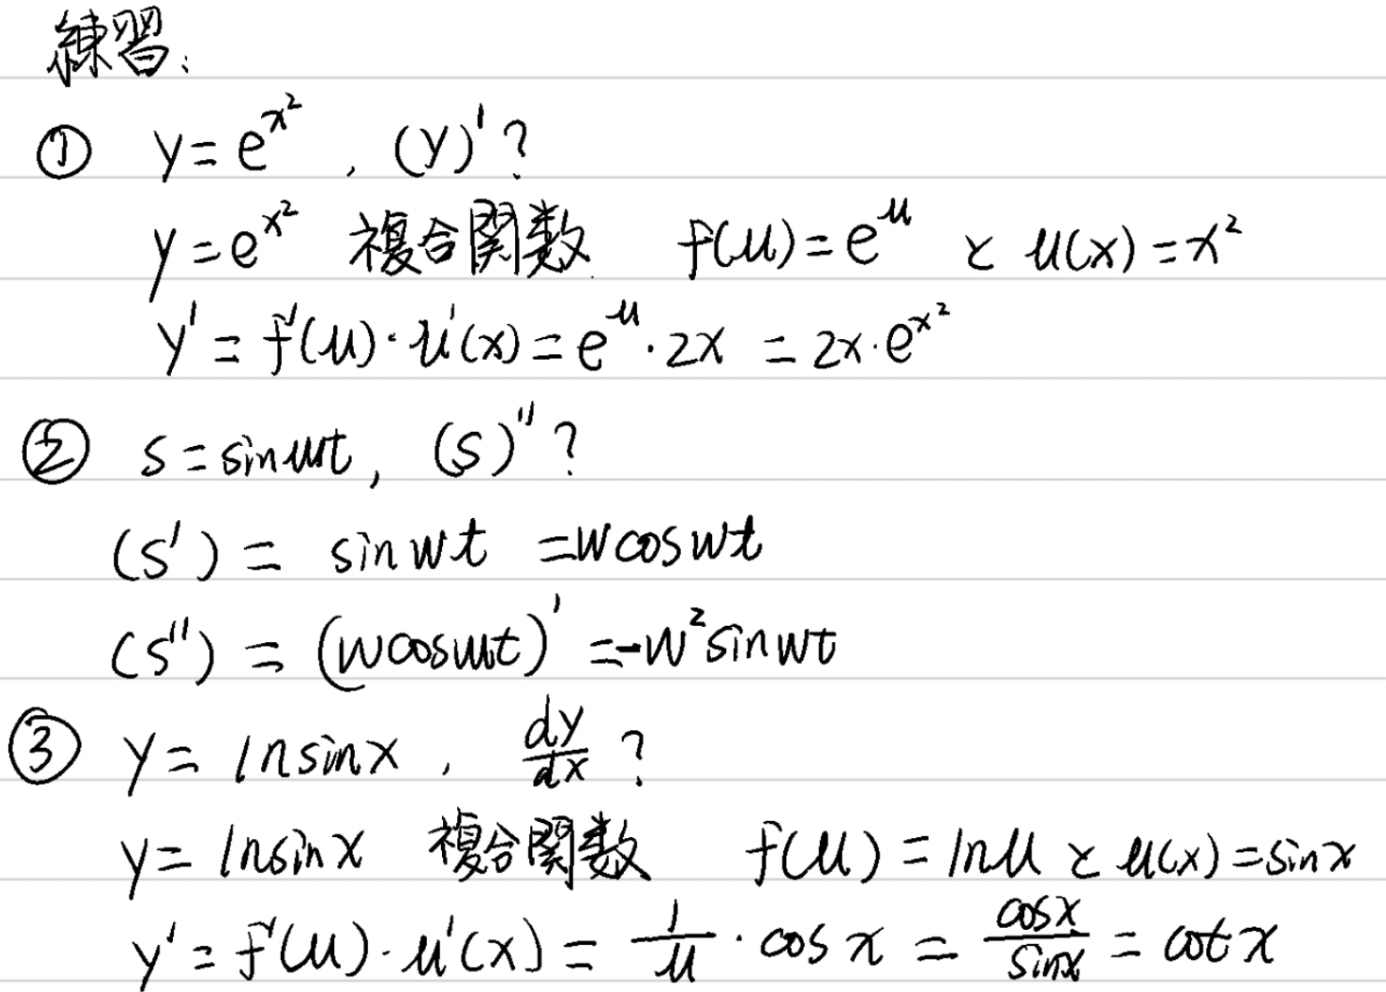 練習:
① y = e^{x²} , (y)' ?
y = e^{x²} 複合関数 f(u) = e^u と u(x) = x²
y' = f'(u)·u'(x) = e^u · 2x = 2x·e^{x²}
② s = sinωt, (s)'' ?
(s') = sinwt = wcoswt
(s'') = (wcoswt)' = -w²sinwt
③ y = lnsinx , dy/dx ?
y = lnsinx 複合関数 f(u) = lnu と u(x) = sinx
y' = f'(u)·u'(x) = 1/u · cosx = cosx/sinx = cotx